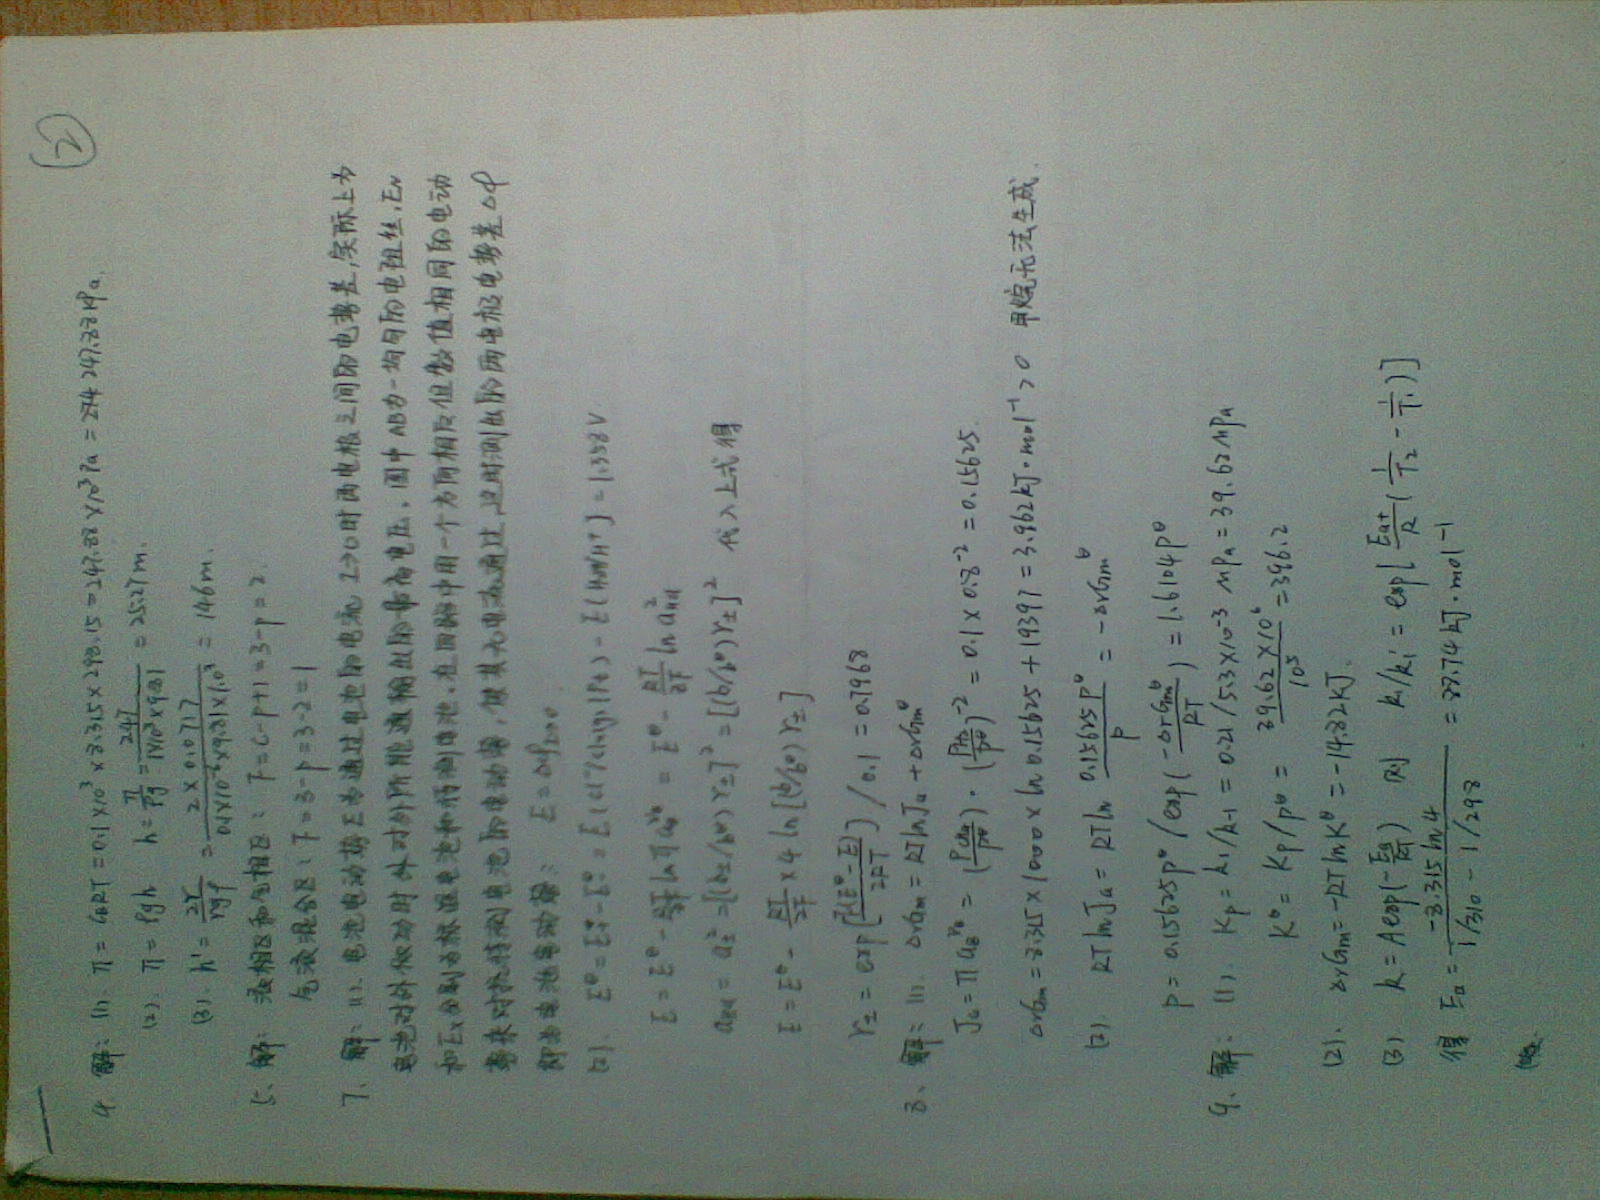 ②
4、解: (1). π = C_B RT = 0.1×10³×8.315×298.15 = 247.88×10³Pa = 247.88kPa.
(2). π = ρgh h = π/ρg = 247/1×10³×9.81 = 25.27m.
(3). h' = 2γ/rρg = 2×0.0717/ ×9.81×1.0³ = 146m.
5、解: 液相区和气相区: F = C-P+1 = 3-P = 2.
气液混合区: F = 3-P = 3-2 = 1
7、解: (1). 电池电动势E为通过电池的电流I→0时两电极之间的电势差,实际上为
电池对外做功时对外所能输出的最高电压. 图中AB为一均匀的电阻丝, E_N
和E_X分别为标准电池和待测电池. 在回路中用一个方向相反但数值相同的电动
势来对抗待测电池的电动势, 使其无电流通过, 这时测出的两电极电势差Δφ
即为电池电动势: E = Δφ_I→0
(2). E^θ = E₊^θ - E₋^θ = E(Cl⁻/ |Pt) - E(H₂|H⁺) = 1.358V
E = E^θ - RT/zF lnΠa_B^νB = E^θ - RT/2F ln a_HCl²
a_HCl = a±² = [(b±/b^θ)γ±]² = [(b/b^θ)γ±]² 代入上式得
E = E^θ - RT/2F ×4 ln[(b/b^θ)γ±]
γ± = exp[F(E^θ-E)/2RT]/0.1 = 0.7968
8、解: (1). ΔrGm = RTlnJa + ΔrGm^θ
Ja = Πa_B^νB = (P_CH₄/P^θ)·(P_H₂/P^θ)⁻² = 0.1×0.8⁻² = 0.15625.
ΔrGm = 8.315×1000×ln0.15625 + 19397 = 3.962kJ·mol⁻¹ > 0 甲烷无法生成.
(2). RTlnJa = RTln 0.15625P^θ/P = -ΔrGm^θ
P = 0.15625P^θ/exp(-ΔrGm^θ/RT) = 1.6104P^θ
9、解: (1). Kp = k₁/k₋₁ = 0.21/5.3×10⁻³ MPa = 39.62MPa
K^θ = Kp/P^θ = 39.62×10⁶/10⁵ = 396.2
(2). ΔrGm = -RTlnK^θ = -14.82kJ.
(3) k = Aexp(-Ea/RT) 则 k₁/k₁' = exp[Ea+/R(1/T₂ - 1/T₁)]
得 Ea = -8.315ln4/1/310 - 1/298 = 88.74kJ·mol⁻¹